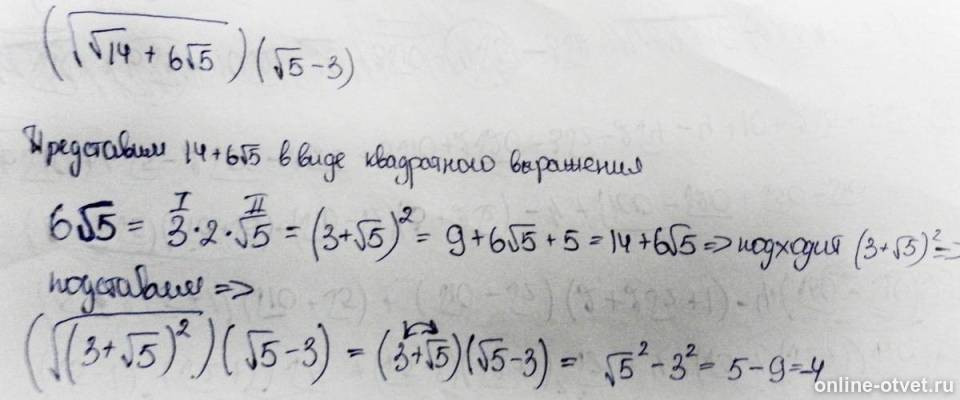 (√(√14 + 6√5)) (√5 − 3)
Представим 14+6√5 в виде квадратного выражения
I II
6√5 = 3·2·√5 = (3+√5)² = 9+6√5+5 = 14+6√5 => подходит (3+√5)² =>
подставим =>
(√(3+√5)²) (√5−3) = (3+√5)(√5−3) = √5² − 3² = 5−9=−4
online-otvet.ru